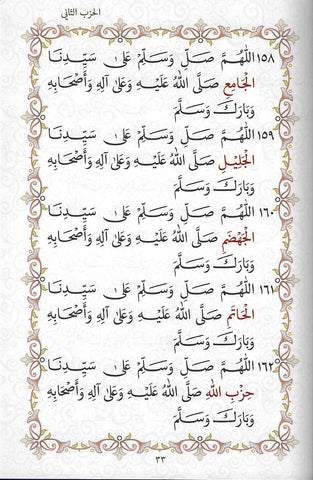 الحزب الثاني
١٥٨ اللَّهُمَّ صَلِّ وَسَلِّمْ عَلَىٰ سَيِّدِنَا
الْجَامِعِ صَلَّى اللهُ عَلَيْهِ وَعَلَىٰ آلِهِ وَأَصْحَابِهِ
وَبَارَكَ وَسَلَّمَ
١٥٩ اللَّهُمَّ صَلِّ وَسَلِّمْ عَلَىٰ سَيِّدِنَا
الْجَلِيلِ صَلَّى اللهُ عَلَيْهِ وَعَلَىٰ آلِهِ وَأَصْحَابِهِ
وَبَارَكَ وَسَلَّمَ
١٦٠ اللَّهُمَّ صَلِّ وَسَلِّمْ عَلَىٰ سَيِّدِنَا
الْجَهْضَمِ صَلَّى اللهُ عَلَيْهِ وَعَلَىٰ آلِهِ وَأَصْحَابِهِ
وَبَارَكَ وَسَلَّمَ
١٦١ اللَّهُمَّ صَلِّ وَسَلِّمْ عَلَىٰ سَيِّدِنَا
الْحَاتِمِ صَلَّى اللهُ عَلَيْهِ وَعَلَىٰ آلِهِ وَأَصْحَابِهِ
وَبَارَكَ وَسَلَّمَ
١٦٢ اللَّهُمَّ صَلِّ وَسَلِّمْ عَلَىٰ سَيِّدِنَا
حِزْبِ اللهِ صَلَّى اللهُ عَلَيْهِ وَعَلَىٰ آلِهِ وَأَصْحَابِهِ
وَبَارَكَ وَسَلَّمَ
٣٣